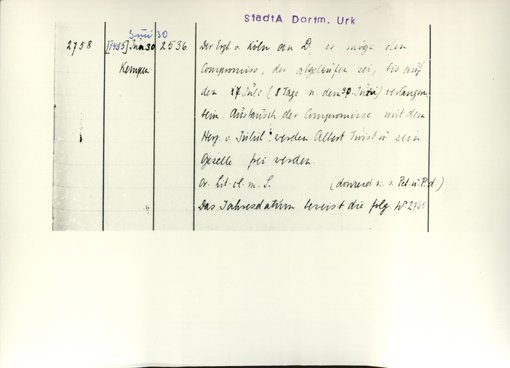 StadtA Dortm. Urk
Juni 30
2758 [1485] Juni 30 2536 Der Erzb. v. Köln an D, es möge den
Kempen Compromiss, der abgelaufen sei, bis auf
den 17 Juli (8 Tage n. dem 30. Juni) verlängern
beim Austausch der Compromisse mit dem
Herz. v. Jülich werden Albert u sein
Geselle frei werden.
Or. lit. cl. m. S. (donrend n. s. Pet. u P. d.)
Das Jahresdatum beweist die folg. N°